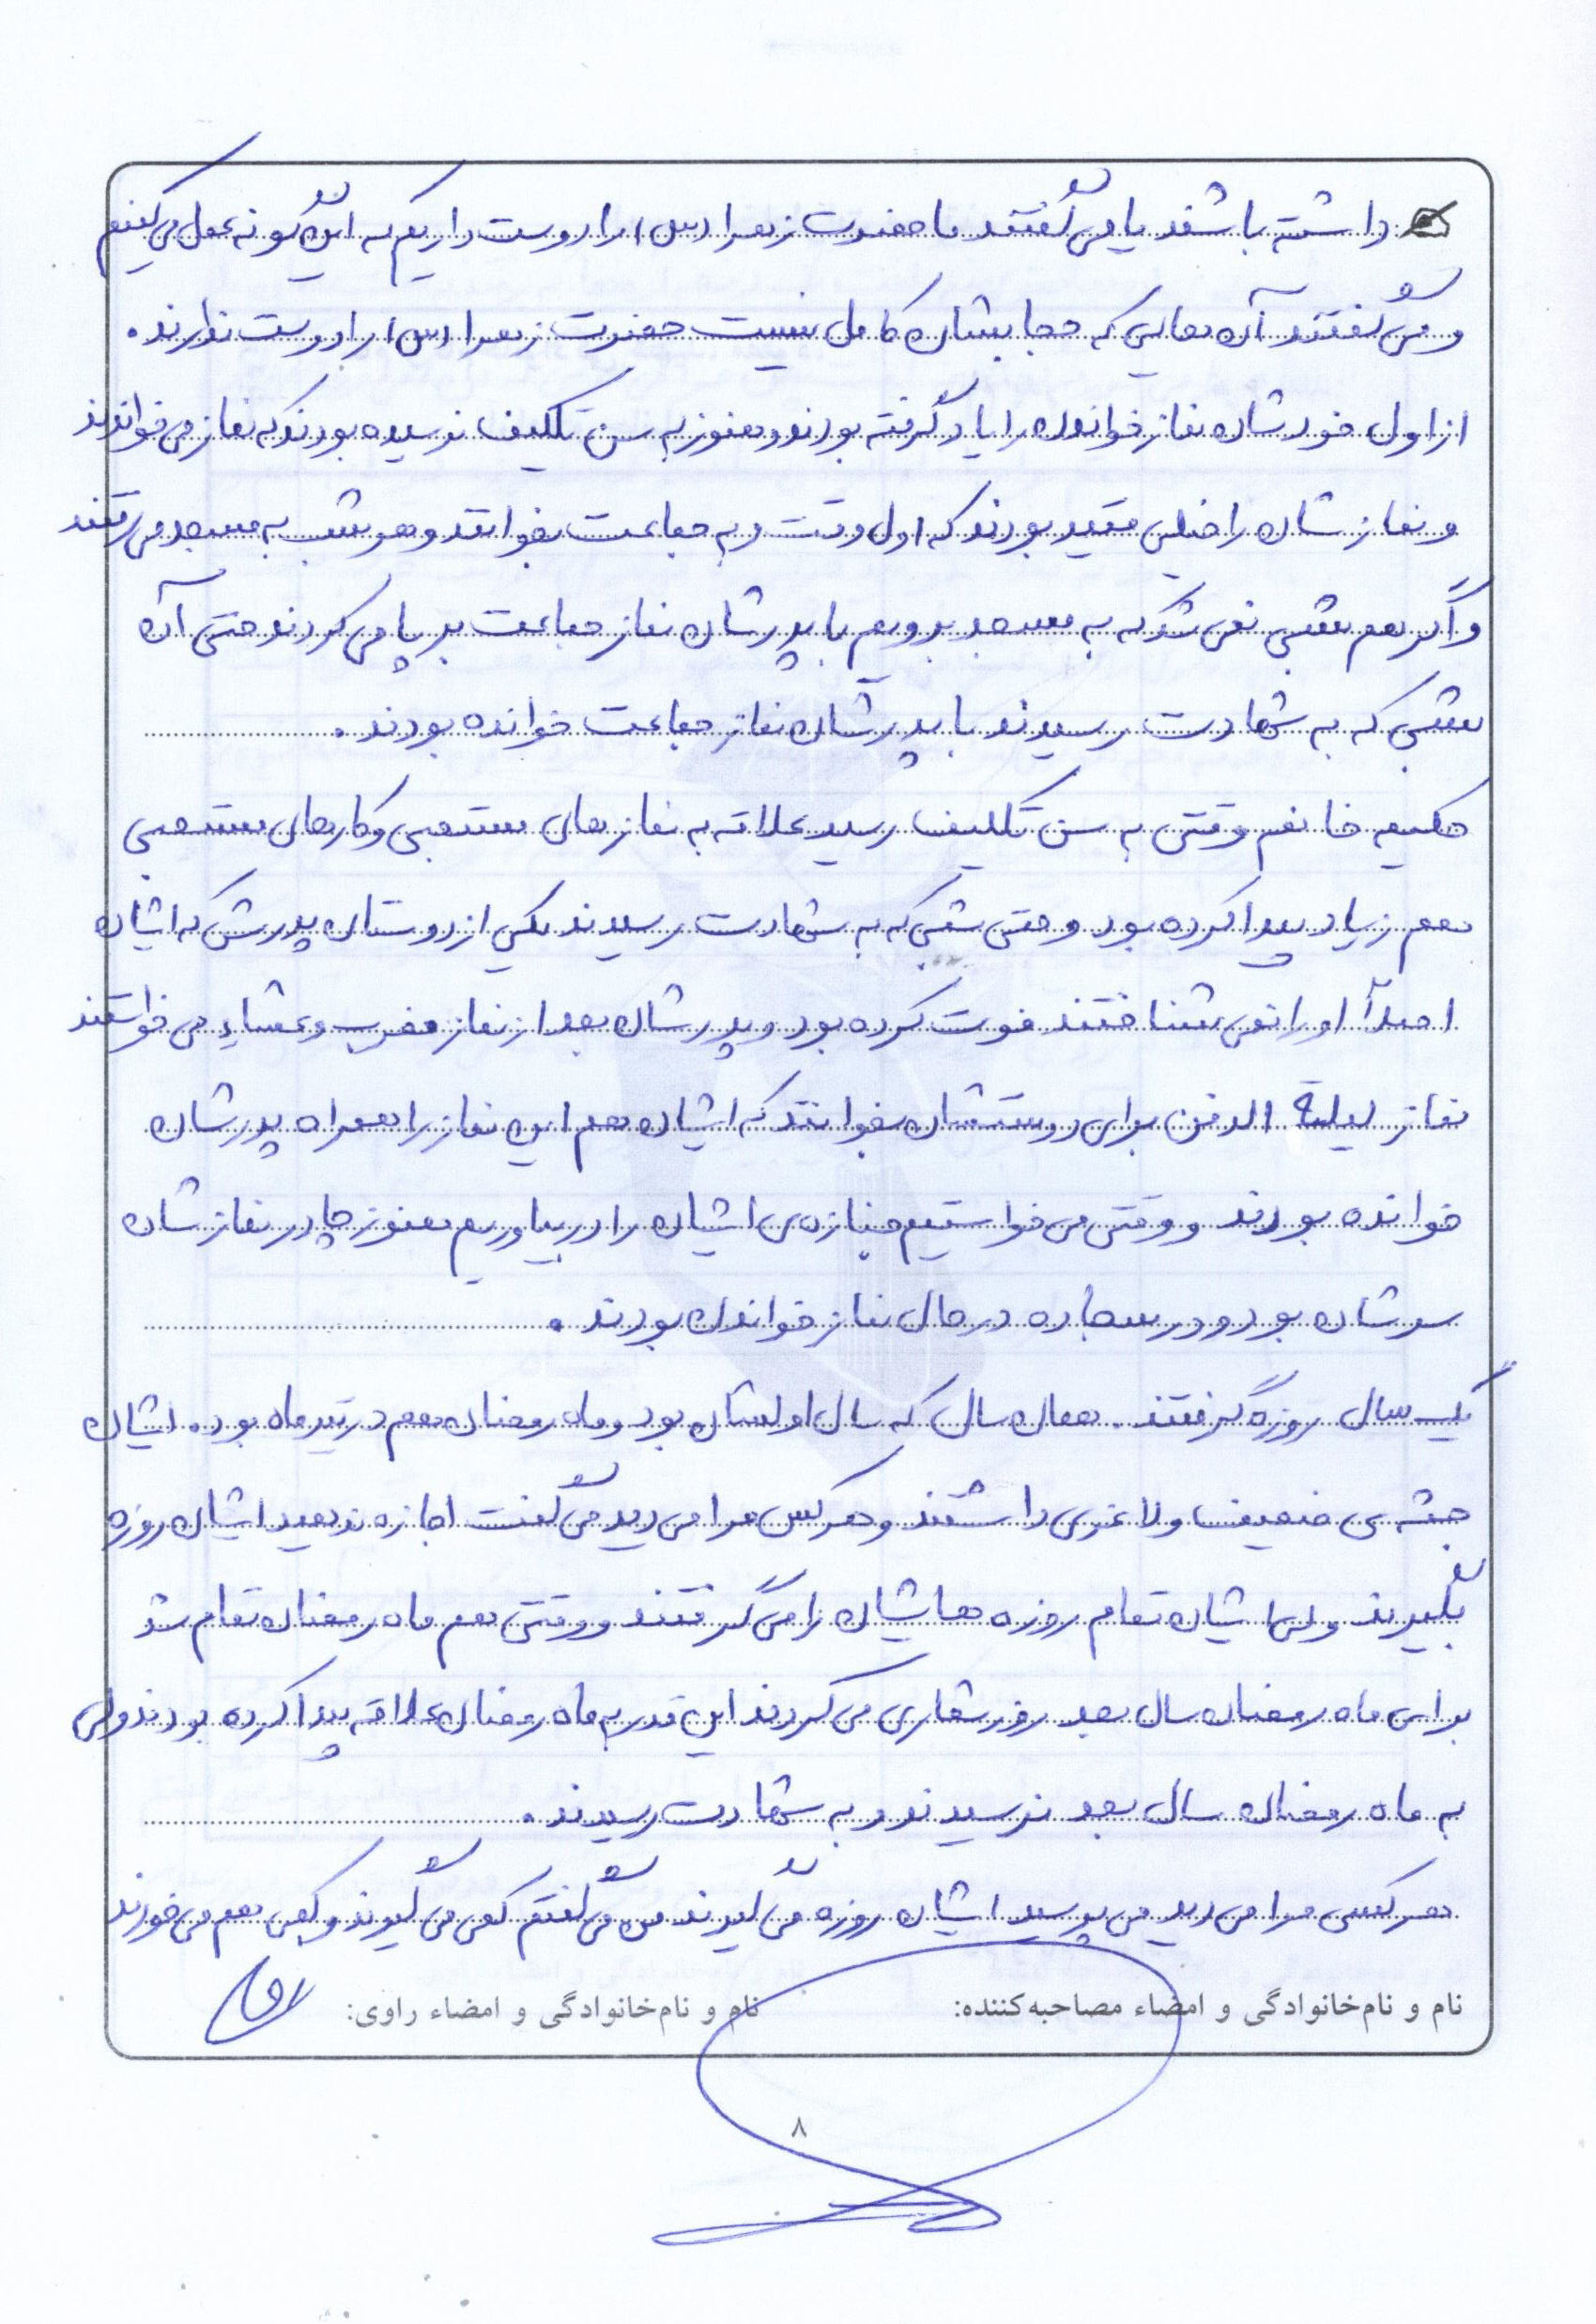 داشته باشند یا می‌گفتند ما حضرت زهرا (س) را دوست داریم که این گونه عمل می‌کنیم
و می‌گفتند آن‌هایی که حجابشان کامل نیست حضرت زهرا (س) را دوست ندارند.
از اول خودشان نماز خواندن را یاد گرفته بودند و هنوز به سن تکلیف نرسیده بودند که نماز می‌خواندند
و نمازشان را خیلی مقید بودند که اول وقت و به جماعت بخوانند و هر شب به مسجد می‌رفتند
و اگر هم شبی نمی‌شد که به مسجد برویم با پدرشان نماز جماعت بر پا می‌کردند حتی آن
شبی که به شهادت رسیدند با پدرشان نماز جماعت خوانده بودند.
حکیمه خانم وقتی به سن تکلیف رسید علاقه به نمازهای مستحبی و کارهای مستحبی
هم زیاد پیدا کرده بود و حتی شبی که به شهادت رسیدند یکی از دوستان پدرش که ایشان
اصلاً او را نمی‌شناختند فوت کرده بود و پدرشان بعد از نماز مغرب و عشاء می‌خواستند
نماز لیلة الدفن برای دوستشان بخوانند که ایشان هم این نماز را همراه پدرشان
خوانده بودند و وقتی می‌خواستیم جنازه‌ی ایشان را در بیاوریم هنوز چادر نمازشان
سرشان بود و در سجاده در حال نماز خواندن بودند.
یک سال روزه گرفتند. همان سال که سال اولشان بود و ماه رمضان هم در تیر ماه بود. ایشان
جثه‌ی ضعیف و لاغری داشتند و هر کس مرا می‌دید می‌گفت اجازه ندهید ایشان روزه
بگیرند ولی ایشان تمام روزه هایشان را می‌گرفتند و وقتی هم ماه رمضان تمام شد
برای ماه رمضان سال بعد روز شماری می‌کردند این قدر به ماه رمضان علاقه پیدا کرده بودند ولی
به ماه رمضان سال بعد نرسیدند و به شهادت رسیدند.
هر کسی مرا می‌دید می‌پرسید ایشان روزه می‌گیرند من می‌گفتم کمی می‌گیرند و کمی هم می‌خورند
نام و نام‌خانوادگی و امضاء مصاحبه‌کننده: نام و نام‌خانوادگی و امضاء راوی:
۸